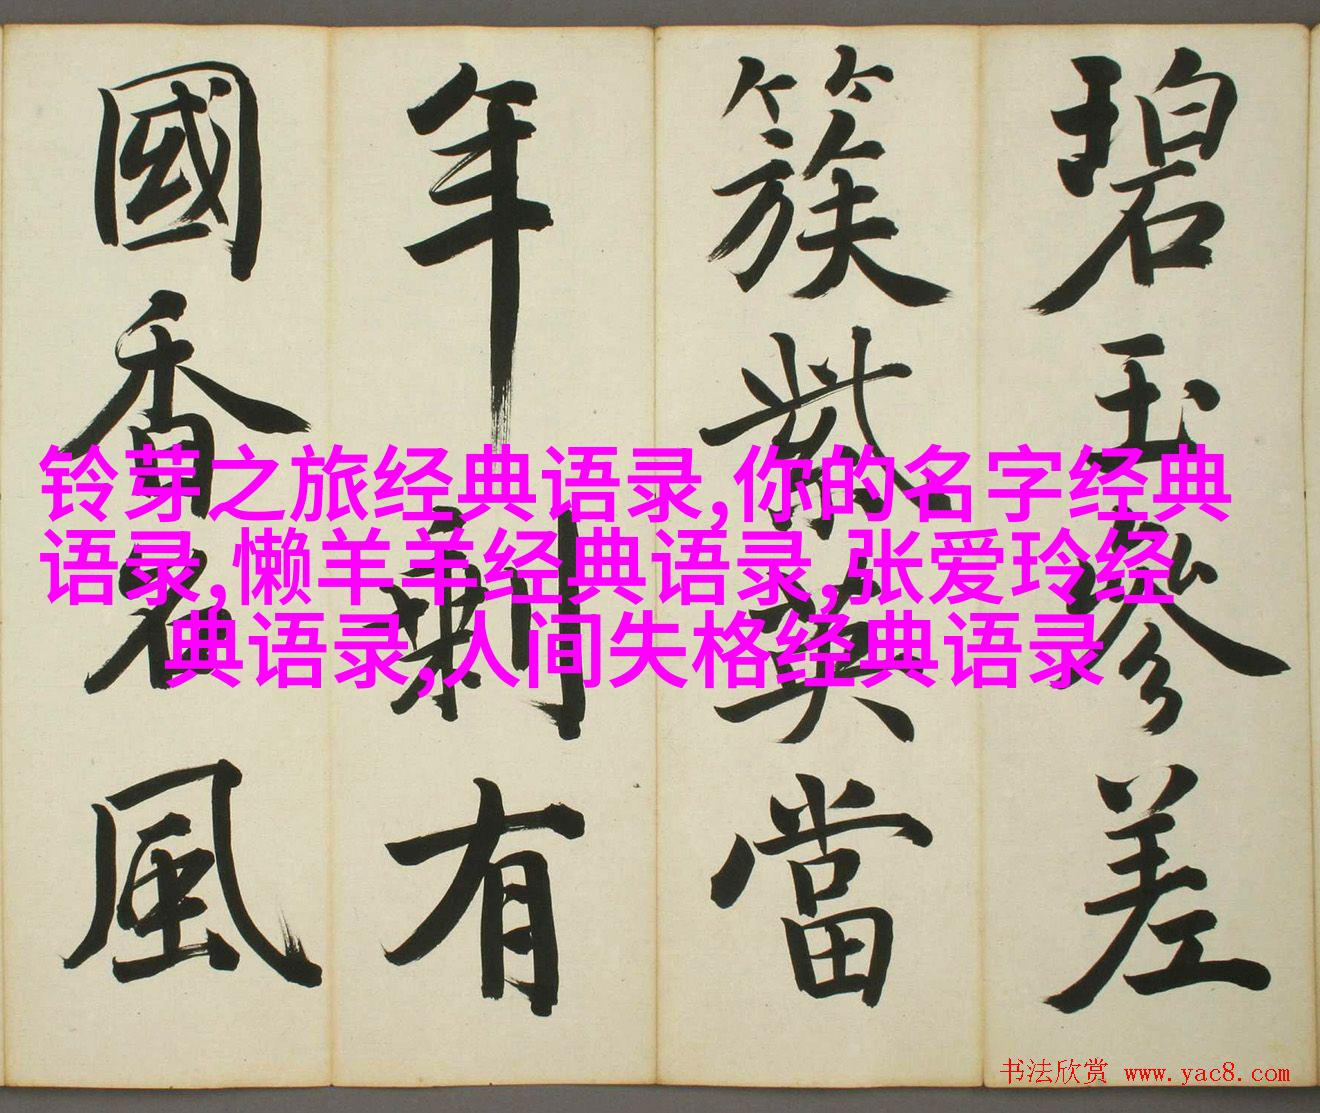 碧玉參差
簇紫英當
年剩有
國香名風
铃芽之旅经典语录,你的名字经典
语录,懒羊羊经典语录,张爱玲经
典语录,人间失格经典语录
书法欣赏 www.yac8.com